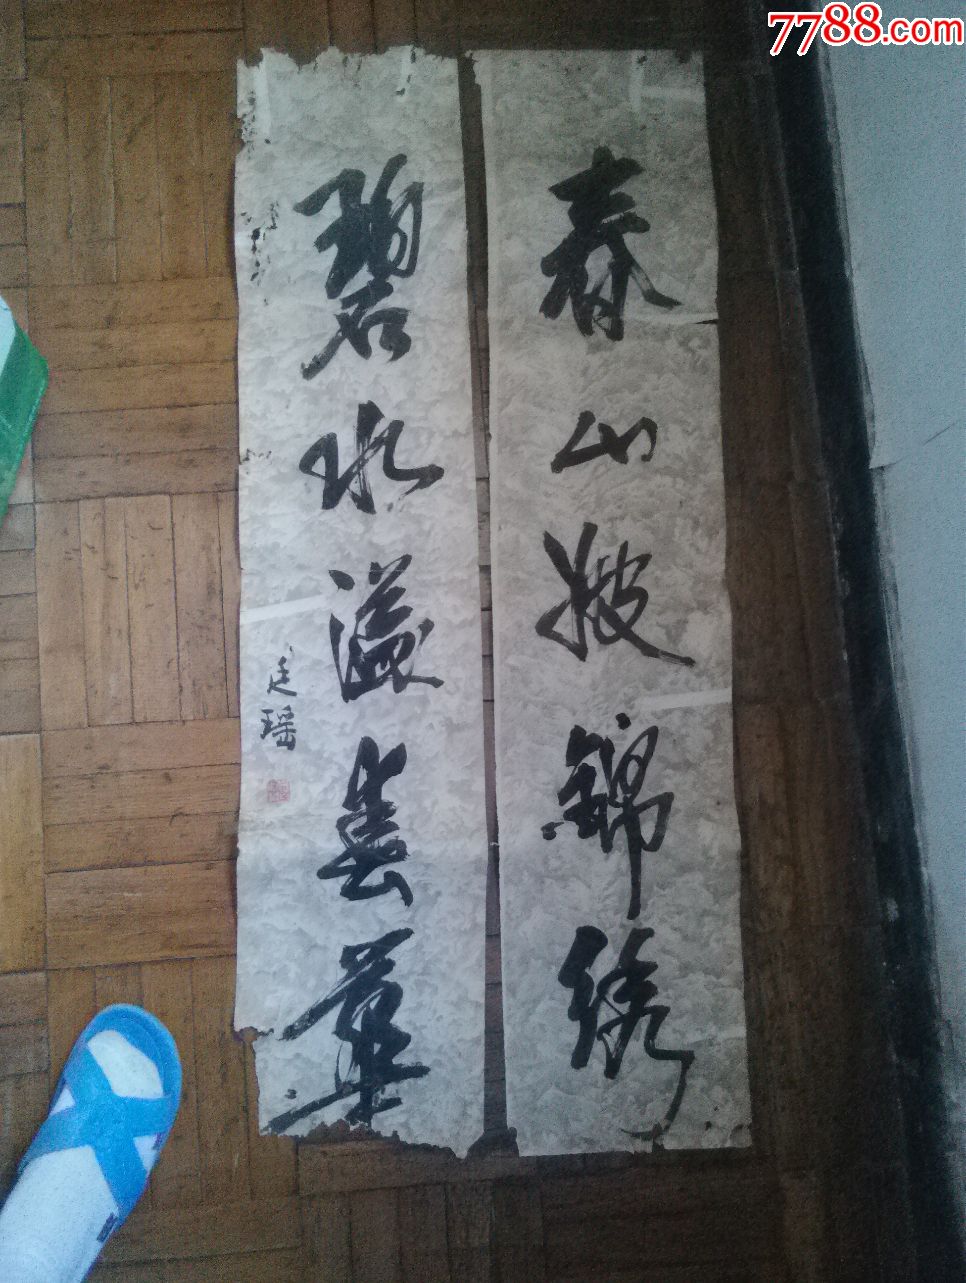 7788.com
春山披錦綉
碧水溢華
廷瑶